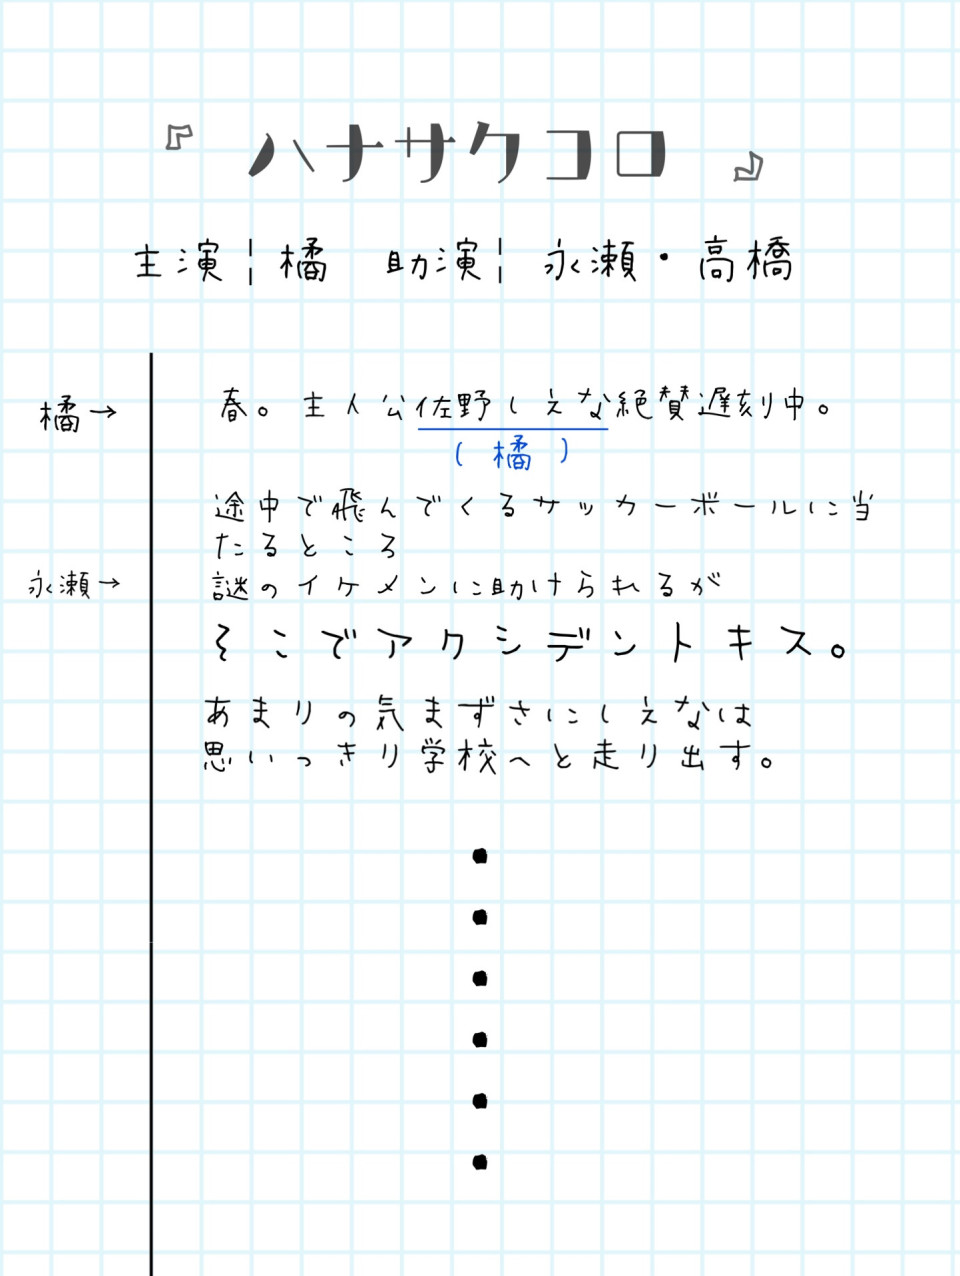 『ハナサクコロ』
主演|橘 助演|永瀬・高橋
橘→ 春。主人公佐野しえな絶賛遅刻中。
(橘)
途中で飛んでくるサッカーボールに当
たるところ
永瀬→ 謎のイケメンに助けられるが
そこでアクシデントキス。
あまりの気まずさにしえなは
思いっきり学校へと走り出す。